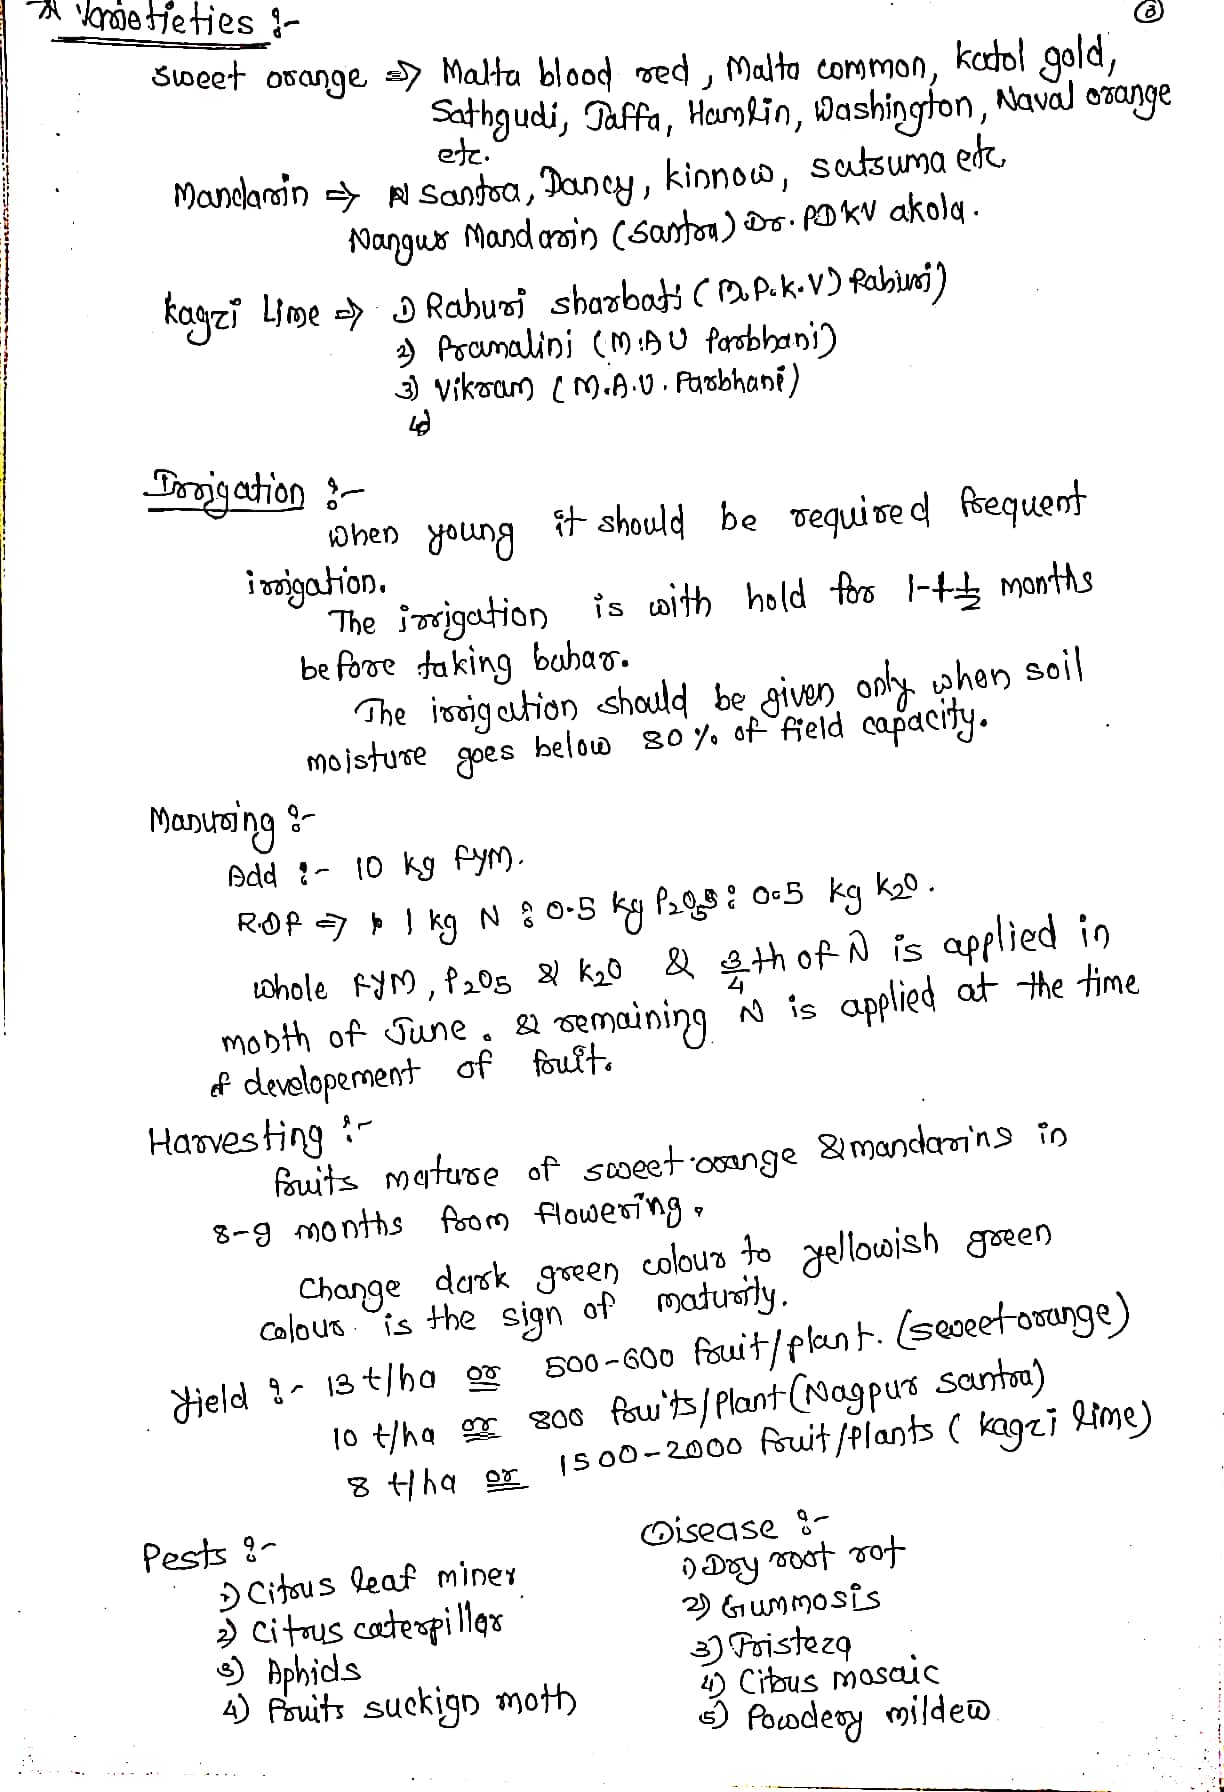 ③
* Varietieties :-
Sweet orange => Malta blood red, Malta common, katol gold,
Sathgudi, Jaffa, Hamlin, Washington, Naval orange
etc.
Mandarin => Santra, Dancy, kinnow, satsuma etc
Nangur Mandarin (Santra) Dr. PDKV akola.
kagzi Lime => 1) Rahuri sharbati (M.P.K.V) Rahuri)
2) Pramalini (M.A.U Parbhani)
3) Vikram (M.A.U. Parbhani)
4)
Irrigation :-
When young it should be required frequent
irrigation.
The irrigation is with hold for 1-1½ months
before taking bahar.
The irrigation should be given only when soil
moisture goes below 80% of field capacity.
Manuring :-
Add :- 10 kg FYM.
R.D.F => 1 kg N : 0.5 kg P2O5 : 0.5 kg K2O.
whole FYM, P2O5 & K2O & 3/4 th of N is applied in
month of June. & remaining N is applied at the time
of developement of fruit.
Harvesting :-
Fruits mature of sweet orange & mandarins in
8-9 months from flowering.
Change dark green colour to yellowish green
colour is the sign of maturity.
Yield :- 13 t/ha or 500-600 fruit/plant. (sweet orange)
10 t/ha or 800 fruits/Plant (Nagpur santra)
8 t/ha or 1500-2000 fruit/plants ( kagzi lime)
Pests :-
1) Citrus leaf miner
2) Citrus caterpillar
3) Aphids
4) Fruits suckign moth
Disease :-
1) Dry root rot
2) Gummosis
3) Tristeza
4) Citrus mosaic
5) Powdery mildew